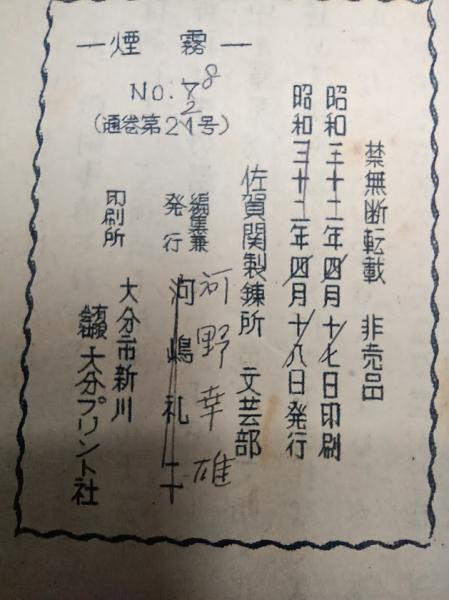 ―煙霧―
No. 7 8
(通巻第21号)
2
禁無断転載 非売品
昭和三十二年四月十七日印刷
昭和三十二年四月十八日発行
佐賀関製錬所 文芸部
編集兼
発行 河嶋礼二
河野幸雄
印刷所 大分市新川
有限会社 大分プリント社